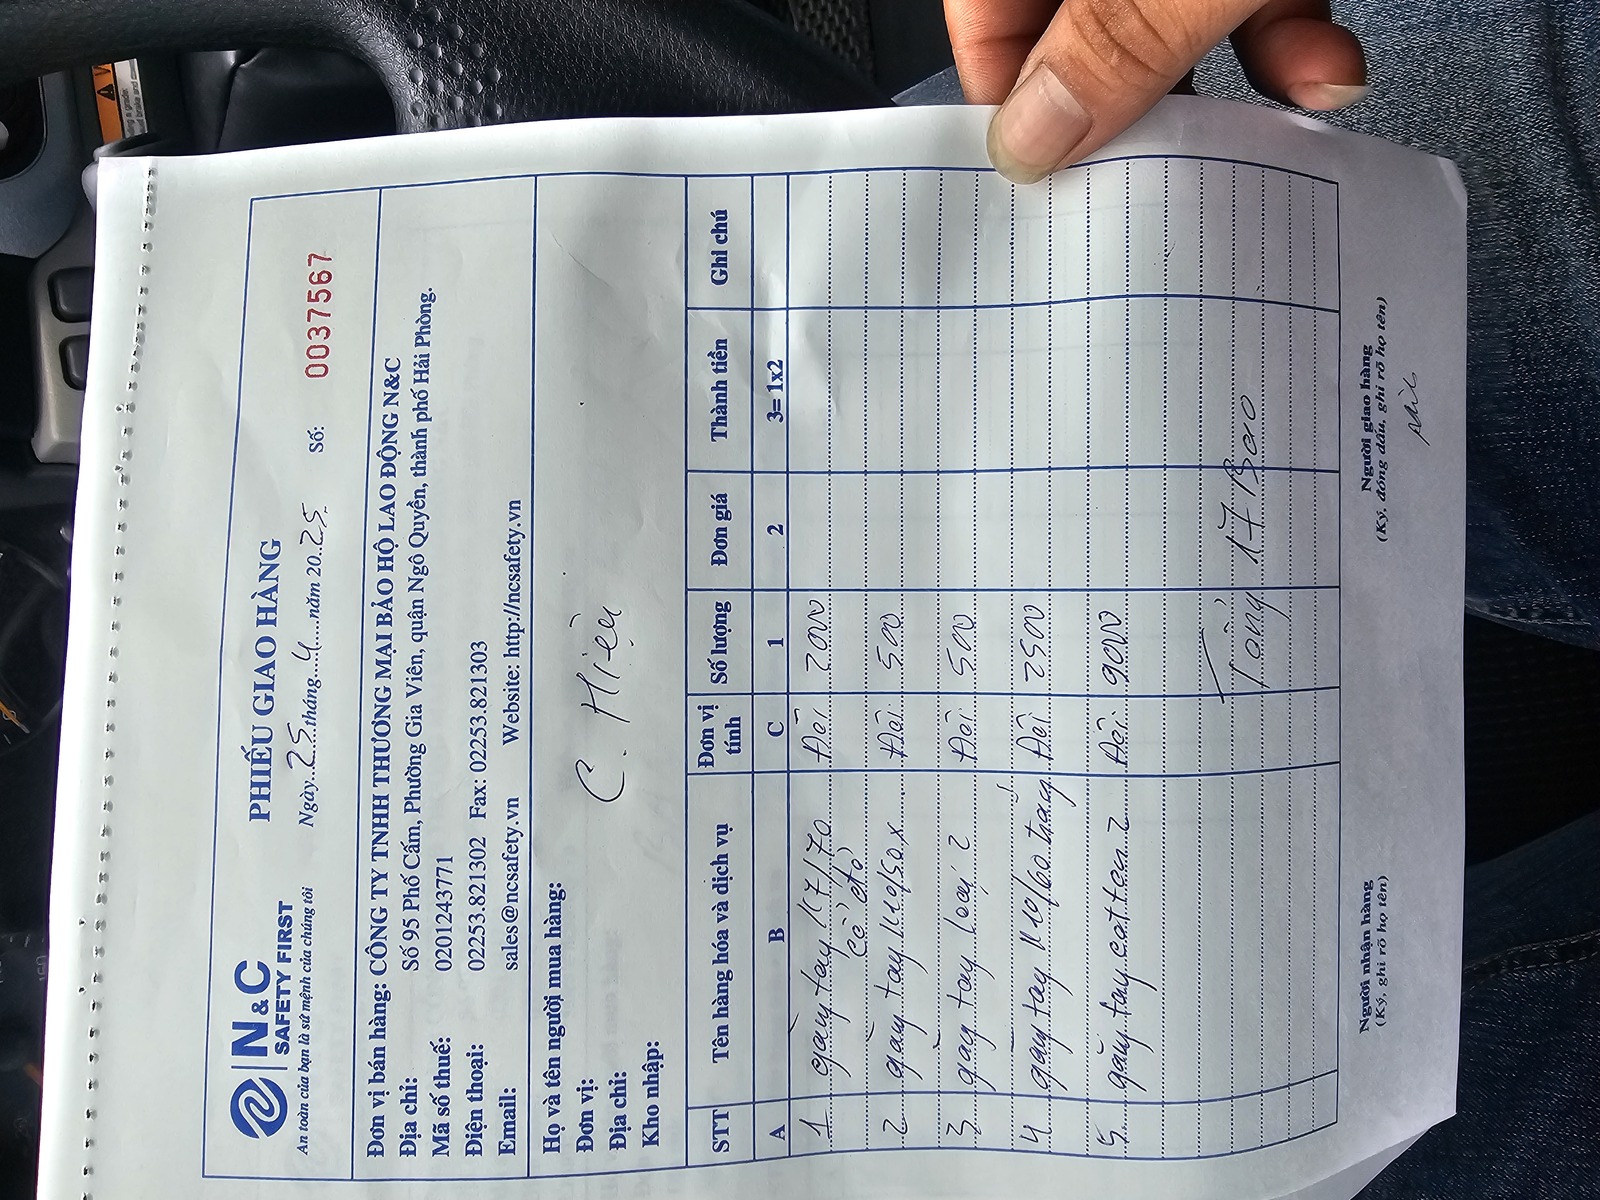 N&C
SAFETY FIRST
An toàn của bạn là sứ mệnh của chúng tôi
PHIẾU GIAO HÀNG
Ngày 25 tháng 4 năm 2025 Số: 0037567
Đơn vị bán hàng: CÔNG TY TNHH THƯƠNG MẠI BẢO HỘ LAO ĐỘNG N&C
Địa chỉ: Số 95 Phố Cấm, Phường Gia Viên, quận Ngô Quyền, thành phố Hải Phòng.
Mã số thuế: 0201243771
Điện thoại: 02253.821302 Fax: 02253.821303
Email: sales@ncsafety.vn Website: http://ncsafety.vn
Họ và tên người mua hàng:
Đơn vị: C. Hiệu
Địa chỉ:
Kho nhập:
STT Tên hàng hóa và dịch vụ Đơn vị tính Số lượng Đơn giá Thành tiền Ghi chú
A B C 1 2 3= 1x2
1 găng tay K7/70 Đôi 2000
cổ đỏ
2 găng tay K10/50 x Đôi 500
3 găng tay loại 2 Đôi 500
4 găng tay K10/60 trắng Đôi 2500
5 găng tay cotton 2 Đôi 9000
Tổng 17 Bao
Người nhận hàng Người giao hàng
(Ký, ghi rõ họ tên) (Ký, đóng dấu, ghi rõ họ tên)